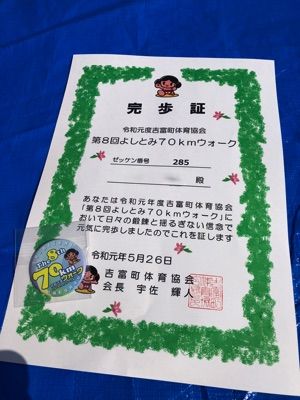 完歩証
令和元度吉富町体育協会
第8回よしとみ70kmウォーク
ゼッケン番号 285
殿
あなたは令和元年度吉富町体育協会
「第8回よしとみ70kmウォーク」に
おいて日々の鍛錬と揺るぎない信念で
元気に完歩しましたのでこれを証します
令和元年5月26日
吉富町体育協会
会長 宇佐 輝人
The 8th
70km
ウォーク